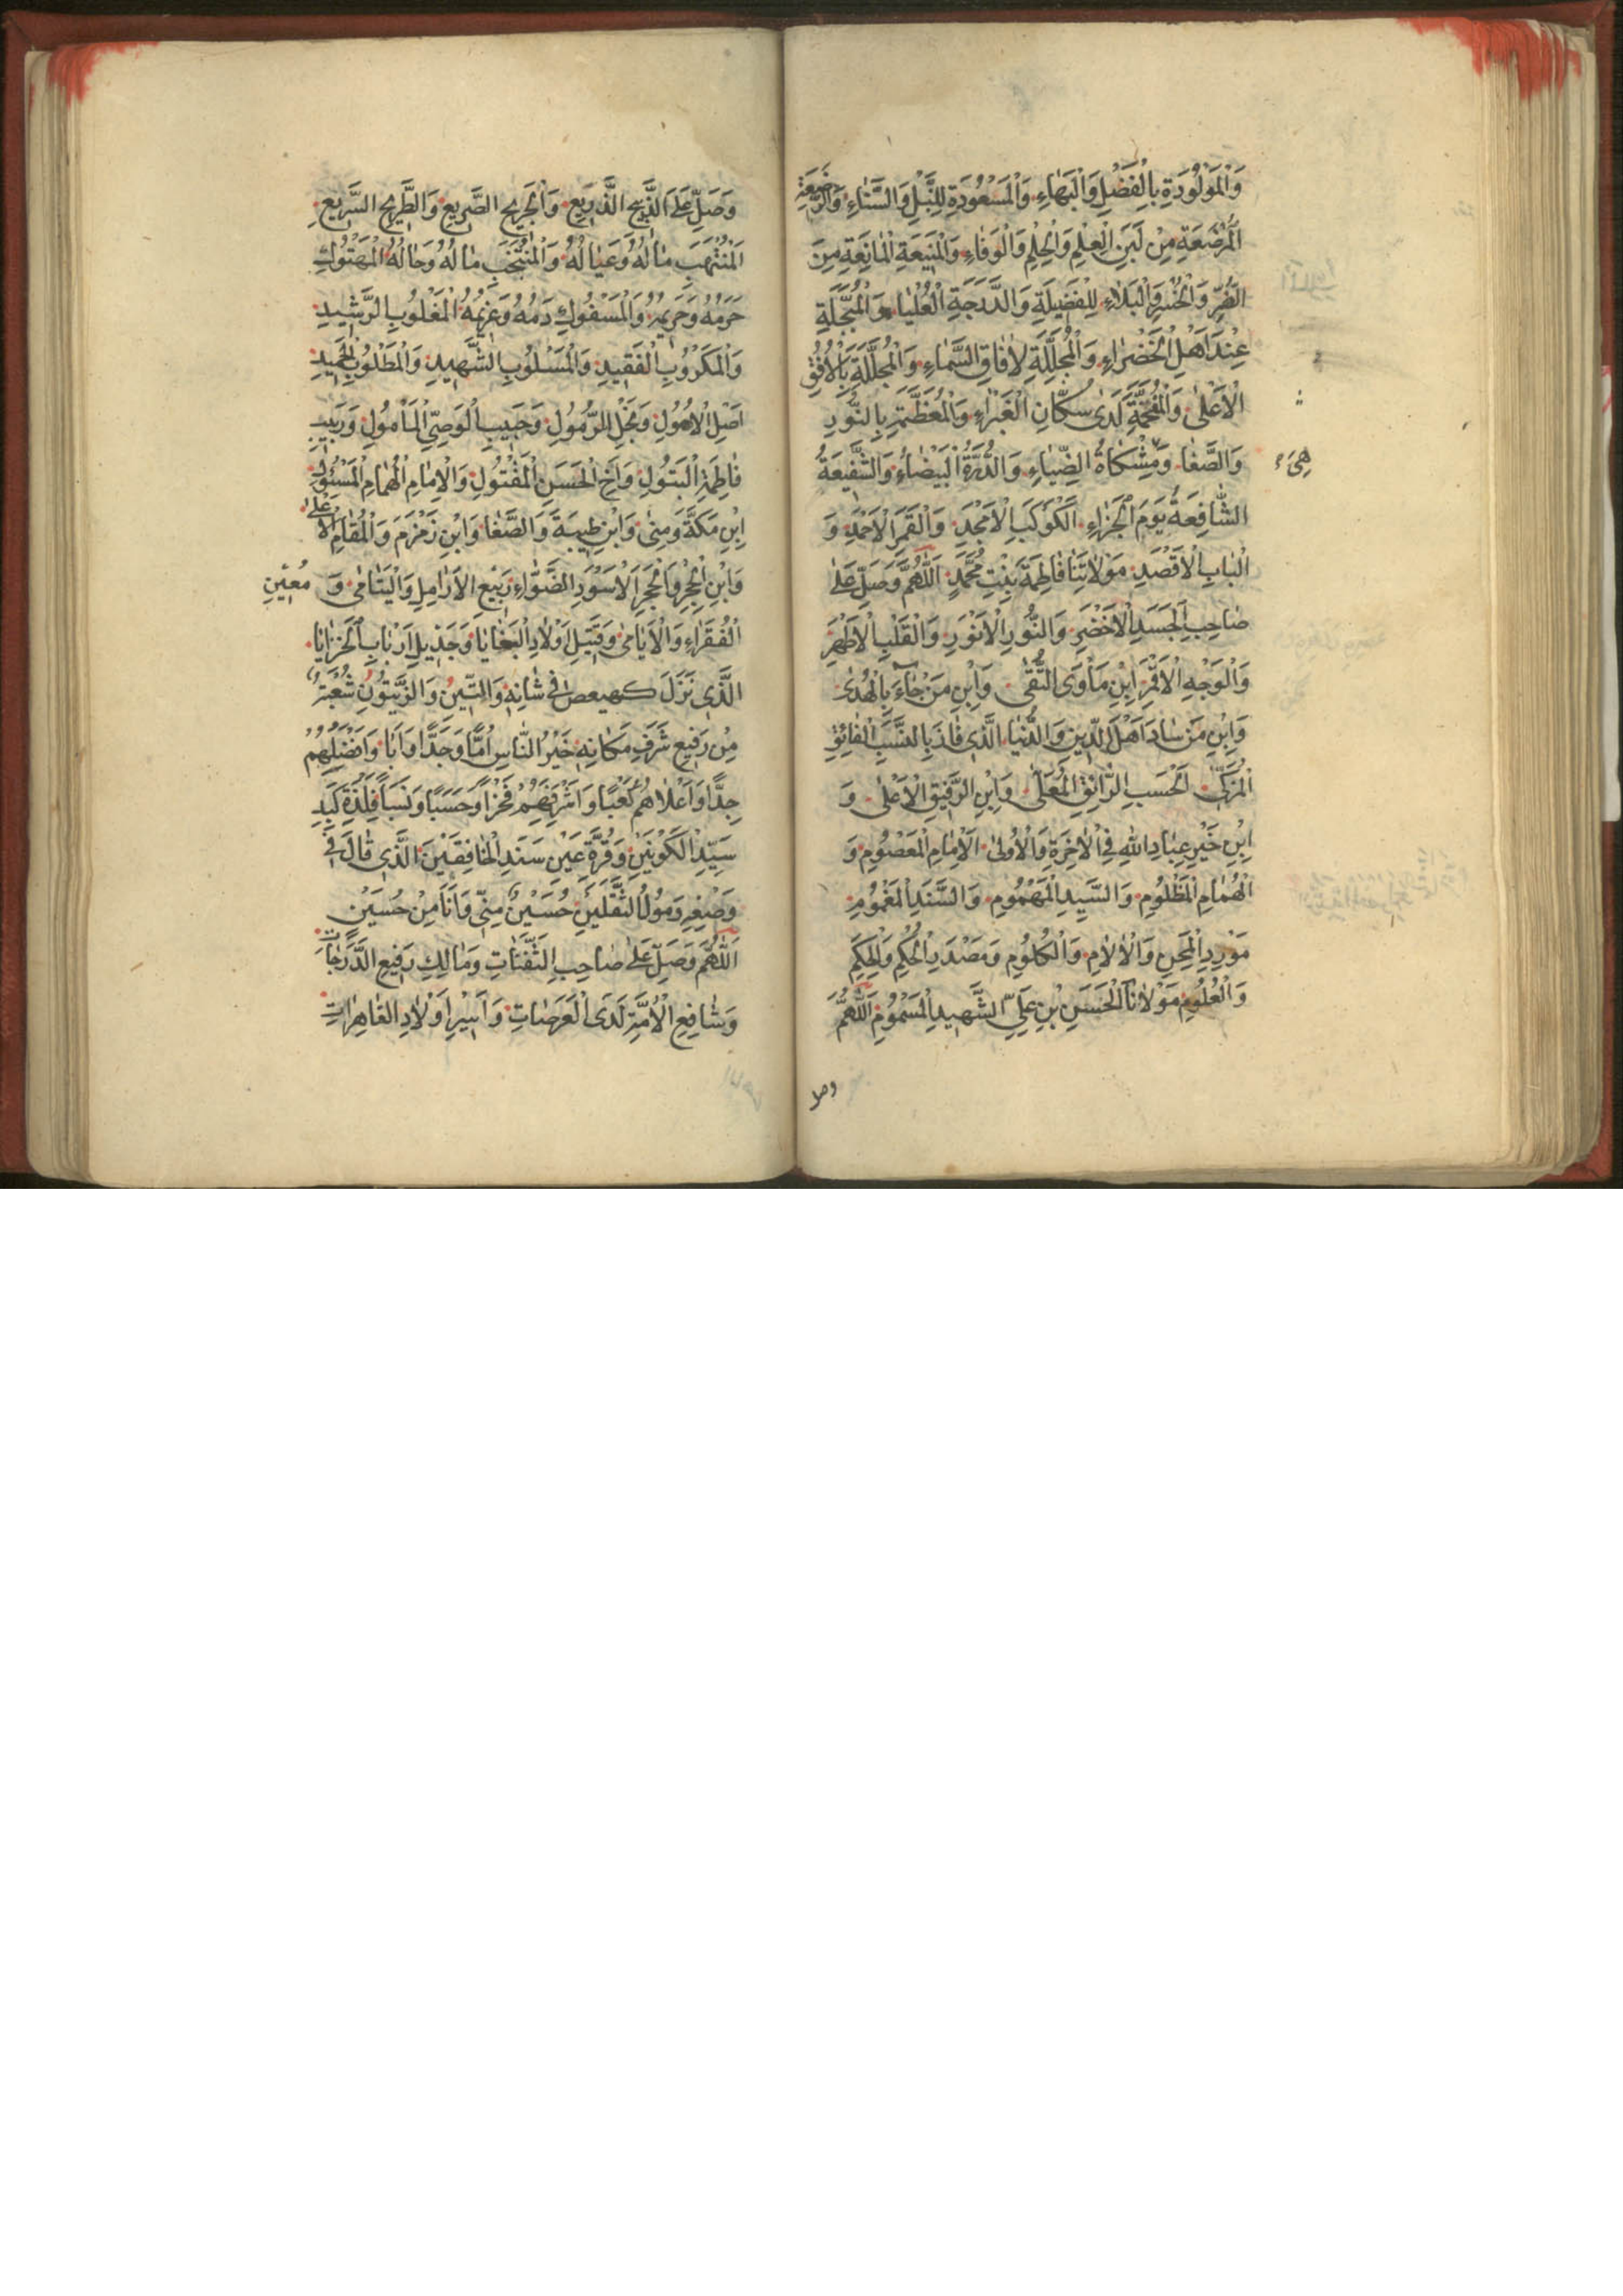 وَالْمَوْلُودَةِ بِالْفَضْلِ وَالْبَهَاءِ وَالْمَسْعُودَةِ لِلنُّبْلِ وَالسَّنَاءِ وَالرَّضِيعَةِ
الْمُرْضَعَةِ مِنْ لَبَنِ الْعِلْمِ وَالْحِلْمِ وَالْوَفَاءِ وَالْمَنِيعَةِ الْمَانِعَةِ مِنَ
الضُّرِّ وَالْبَلَاءِ لِلْفَضِيلَةِ وَالدَّرَجَةِ الْعُلْيَا وَالْمُبَجَّلَةِ
عِنْدَ اَهْلِ الْخَضْرَاءِ وَالْمُجَلِّلَةِ لِاٰفَاقِ السَّمَاءِ وَالْمُجَلَّلَةِ بِالْاُفُقِ
الْاَعْلٰى وَالْمُفَخَّمَةِ لَدٰى سُكَّانِ الْغَبْرَاءِ وَالْمُعَظَّمَةِ بِالنُّورِ
وَالصَّفَا وَمِشْكَاةُ الضِّيَاءِ وَالدُّرَّةُ الْبَيْضَاءُ وَالشَّفِيعَةُ
هِيَ
الشَّافِعَةُ يَوْمَ الْجَزَاءِ الْكَوْكَبِ الْاَمْجَدِ وَالْقَمَرِ الْاَحْمَدِ وَ
الْبَابِ الْاَقْصَدِ مَوْلَاتِنَا فَاطِمَةَ بِنْتِ مُحَمَّدٍ اَللّٰهُمَّ وَصَلِّ عَلٰى
صَاحِبِ الْجَسَدِ الْاَخْضَرِ وَالنُّورِ الْاَنْوَرِ وَالْقَلْبِ الْاَطْهَرِ
وَالْوَجْهِ الْاَقْمَرِ اِبْنِ مَأْوَى التُّقٰى وَابْنِ مَنْ جَاءَ بِالْهُدٰى
وَابْنِ مَنْ سَادَ اَهْلَ الدِّينِ وَالدُّنْيَا الَّذِي فَازَ بِالنَّسَبِ الْفَائِقِ
الْمُزَكّٰى الْحَسَبِ الرَّائِقِ الْمُعَلّٰى وَابْنِ الرَّفِيقِ الْاَعْلٰى وَ
ابْنِ خَيْرِ عِبَادِ اللهِ فِي الْاٰخِرَةِ وَالْاُولٰى اَلْاِمَامِ الْمَعْصُومِ وَ
الْهُمَامِ الْمَظْلُومِ وَالسَّيِّدِ الْمَهْمُومِ وَالسَّنَدِ الْمَغْمُومِ
مَوْرِدِ الْمِحَنِ وَالْاٰلَامِ وَالْكُلُومِ وَمَصْدَرِ الْحُكْمِ وَالْحِكَمِ
وَالْعُلُومِ مَوْلَانَا الْحَسَنِ بْنِ عَلِيٍّ الشَّهِيدِ الْمَسْمُومِ اَللّٰهُمَّ
وصل
وَصَلِّ عَلَى الذَّبِيحِ الذَّرِيعِ وَالْجَرِيحِ الصَّرِيعِ وَالطَّرِيحِ السَّرِيعِ
الْمُنْتَهَبِ مَالُهُ وَعِيَالُهُ وَالْمُنْتَخَبِ مَالُهُ وَحَالُهُ الْمَهْتُوكِ
حَرَمُهُ وَحَرِيمُهُ وَالْمَسْفُوكِ دَمُهُ وَغَرِيمُهُ الْمَغْلُوبِ الرَّشِيدِ
وَالْمَكْرُوبِ الْفَقِيدِ وَالْمَسْلُوبِ الشَّهِيدِ وَالْمَطْلُوبِ الْحَمِيدِ
اَصْلِ الْاُصُولِ وَنَجْلِ الرَّسُولِ وَحَبِيبِ الْوَصِيِّ الْمَأْمُولِ وَرَبِيبِ
فَاطِمَةِ الْبَتُولِ وَاَخِ الْحَسَنِ الْمَقْتُولِ وَالْاِمَامِ الْهُمَامِ الْمَسْئُولِ
ابْنِ مَكَّةَ وَمِنٰى وَابْنِ طَيْبَةَ وَالصَّفَا وَابْنِ زَمْزَمَ وَالْمَقَامِ الْاَعْلٰى
وَابْنِ الْحِجْرِ وَالْحَجَرِ الْاَسْوَدِ الضَّوَّاءِ رَبِيعِ الْاَرَامِلِ وَالْيَتَامٰى وَ مُعِينِ
الْفُقَرَاءِ وَالْاَيَامٰى وَقَتِيلِ اَوْلَادِ الْبَغَايَا وَجَذِيلِ اَرْبَابِ الْخَزَايَا
الَّذِي نَزَلَ كهيعص فِي شَانِهِ وَالتِّينُ وَالزَّيْتُونُ شُعْبَةٌ
مِنْ رَفِيعِ شَرَفِ مَكَانِهِ خَيْرُ النَّاسِ اُمًّا وَجَدًّا وَاَبًا وَاَفْضَلِهِمْ
جِدًّا وَاَعْلَاهُمْ كَعْبًا وَاَشْرَفِهِمْ فَخْرًا وَحَسَبًا وَنَسَبًا فِلْذَةِ كَبِدِ
سَيِّدِ الْكَوْنَيْنِ وَقُرَّةِ عَيْنِ سَنَدِ الْخَافِقَيْنِ الَّذِي قَالَ فِي
وَصْفِهِ رَسُولُ الثَّقَلَيْنِ حُسَيْنٌ مِنِّي وَاَنَا مِنْ حُسَيْنٍ
اَللّٰهُمَّ وَصَلِّ عَلٰى صَاحِبِ الثَّفِنَاتِ وَمَالِكِ رَفِيعِ الدَّرَجَاتِ
وَشَافِعِ الْاُمَّةِ لَدَى الْعَرَصَاتِ وَاَسِيرِ اَوْلَادِ الْعَاهِرَاتِ